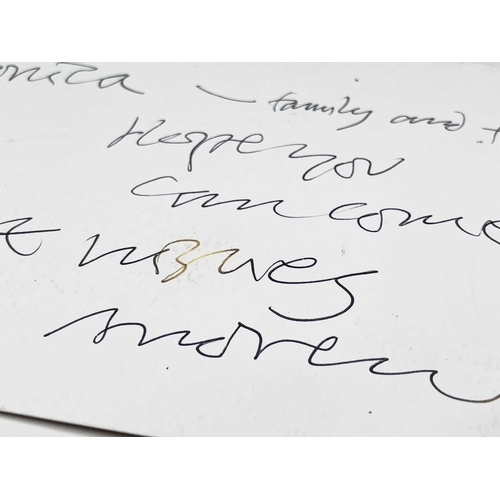 onica — family and
Hope you
can come
wishes
Andrew